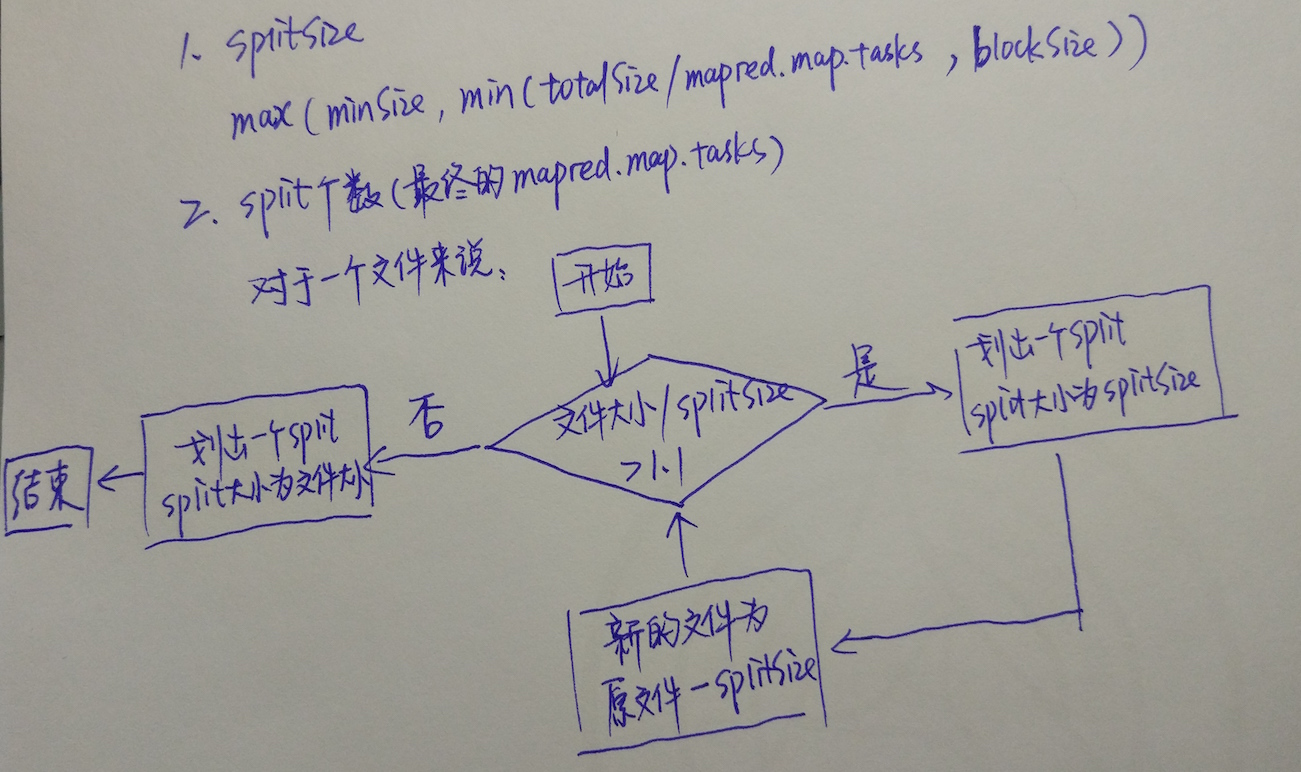 1. splitSize
max(minSize, min(totalSize/mapred.map.tasks, blockSize))
2. split个数(最终的mapred.map.tasks)
对于一个文件来说:
开始
文件大小/splitSize
>1.1
是
划出一个split
split大小为splitSize
否
划出一个split
split大小为文件大小
结束
新的文件为
原文件-splitSize